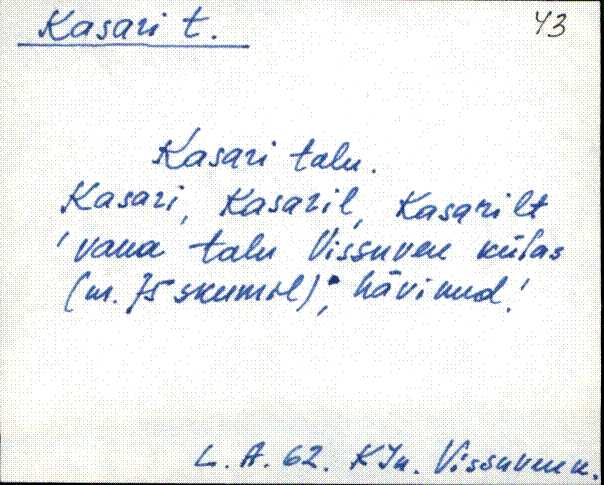 Kasari t. 43
Kasari talu.
Kasari, Kasaril, Kasarilt
'vana talu Vissuvere külas
hävinud.'
L. A. 62. KJn. Vissuvere k.